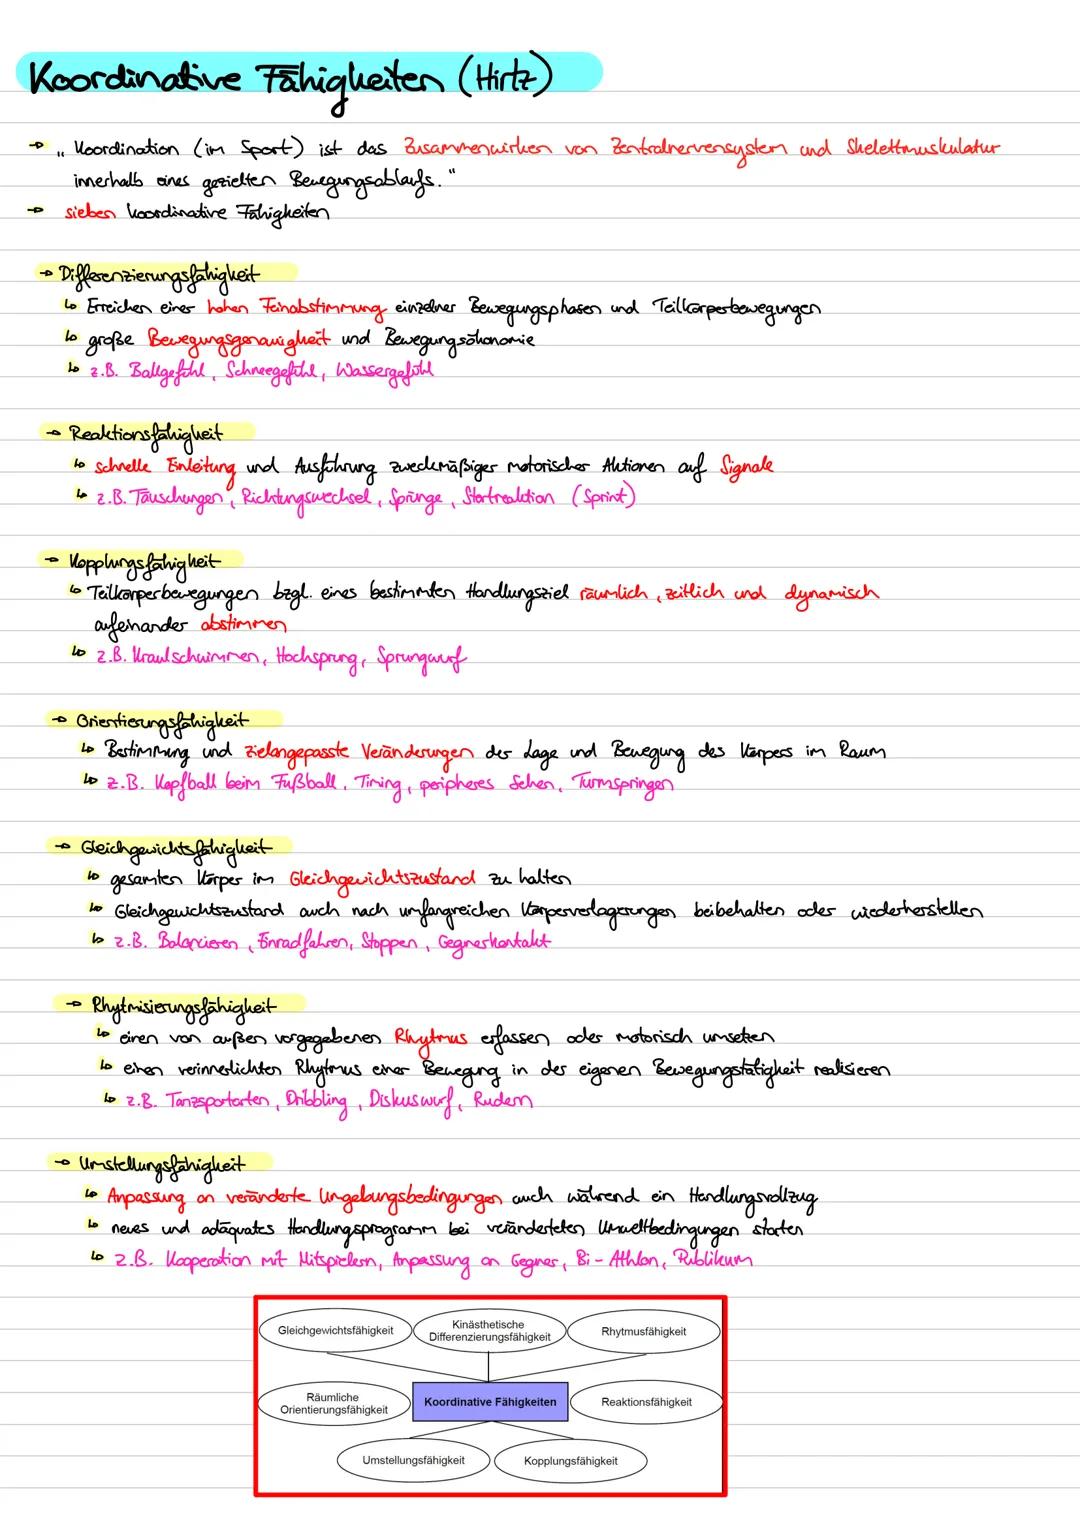 Koordinative Fähigkeiten (Hirtz)
→ „ Koordination (im Sport) ist das Zusammenwirken von Zentralnervensystem und Skelettmuskulatur
innerhalb eines gezielten Bewegungsablaufs. “
→ sieben koordinative Fähigkeiten
→ Differenzierungsfähigkeit
↳ Erreichen einer hohen Feinabstimmung einzelner Bewegungsphasen und Teilkörperbewegungen
↳ große Bewegungsgenauigkeit und Bewegungsökonomie
↳ z.B. Ballgefühl, Schneegefühl, Wassergefühl
→ Reaktionsfähigkeit
↳ schnelle Einleitung und Ausführung zweckmäßiger motorischer Aktionen auf Signale
↳ z.B. Täuschungen, Richtungswechsel, Sprünge, Startreaktion (Sprint)
→ Kopplungsfähigkeit
↳ Teilkörperbewegungen bzgl. eines bestimmten Handlungsziel räumlich, zeitlich und dynamisch
aufeinander abstimmen
↳ z.B. Kraulschwimmen, Hochsprung, Sprungwurf
→ Orientierungsfähigkeit
↳ Bestimmung und zielangepasste Veränderungen der Lage und Bewegung des Körpers im Raum
↳ z.B. Kopfball beim Fußball, Timing, peripheres Sehen, Turmspringen
→ Gleichgewichtsfähigkeit
↳ gesamten Körper im Gleichgewichtszustand zu halten
↳ Gleichgewichtszustand auch nach umfangreichen Körperverlagerungen beibehalten oder wiederherstellen
↳ z.B. Balancieren, Einradfahren, Stoppen, Gegnerkontakt
→ Rhytmisierungsfähigkeit
↳ einen von außen vorgegebenen Rhytmus erfassen oder motorisch umsetzen
↳ einen verinnerlichten Rhytmus einer Bewegung in der eigenen Bewegungstätigkeit realisieren
↳ z.B. Tanzsportarten, Dribbling, Diskuswurf, Rudern
→ Umstellungsfähigkeit
↳ Anpassung an veränderte Umgebungsbedingungen auch während ein Handlungsvollzug
↳ neues und adäquates Handlungsprogramm bei veränderteten Umweltbedingungen starten
↳ z.B. Kooperation mit Mitspielern, Anpassung an Gegner, Bi-Athlon, Publikum
Gleichgewichtsfähigkeit
Kinästhetische
Differenzierungsfähigkeit
Rhytmusfähigkeit
Räumliche
Orientierungsfähigkeit
Koordinative Fähigkeiten
Reaktionsfähigkeit
Umstellungsfähigkeit
Kopplungsfähigkeit